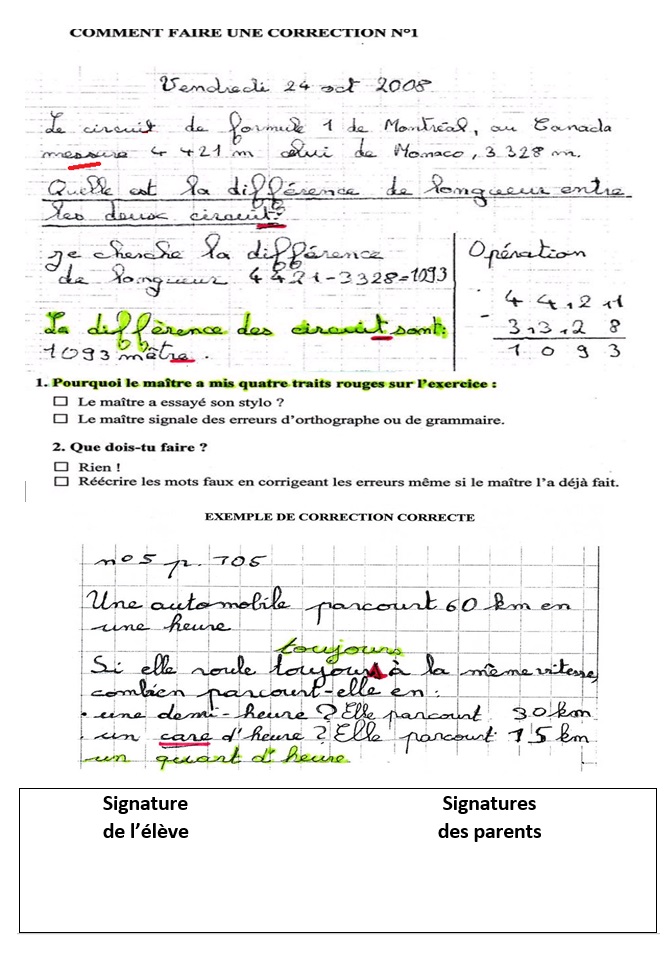 COMMENT FAIRE UNE CORRECTION N°1
Vendredi 24 oct 2008
Le circuit de formule 1 de Montréal, au Canada
messure 4 421 m celui de Monaco, 3 328 m.
Quelle est la différence de longueur entre
les deux circuit?
Je cherche la différence
de longueur 4 421-3328=1093
La différence des circuit sont:
1093 mâtre.
Opération
4 4 2 1
- 3 3 2 8
1 0 9 3
1. Pourquoi le maître a mis quatre traits rouges sur l'exercice :
☐ Le maître a essayé son stylo ?
☐ Le maître signale des erreurs d'orthographe ou de grammaire.
2. Que dois-tu faire ?
☐ Rien !
☐ Réécrire les mots faux en corrigeant les erreurs même si le maître l'a déjà fait.
EXEMPLE DE CORRECTION CORRECTE
n° 5 p. 105
Une automobile parcourt 60 km en
une heure
toujours
Si elle roule toujours à la même vitesse,
combien parcourt-elle en :
. une demi-heure ? Elle parcourt 30 km
. un care d'heure ? Elle parcourt 15 km
un quart d'heure
Signature
de l'élève
Signatures
des parents